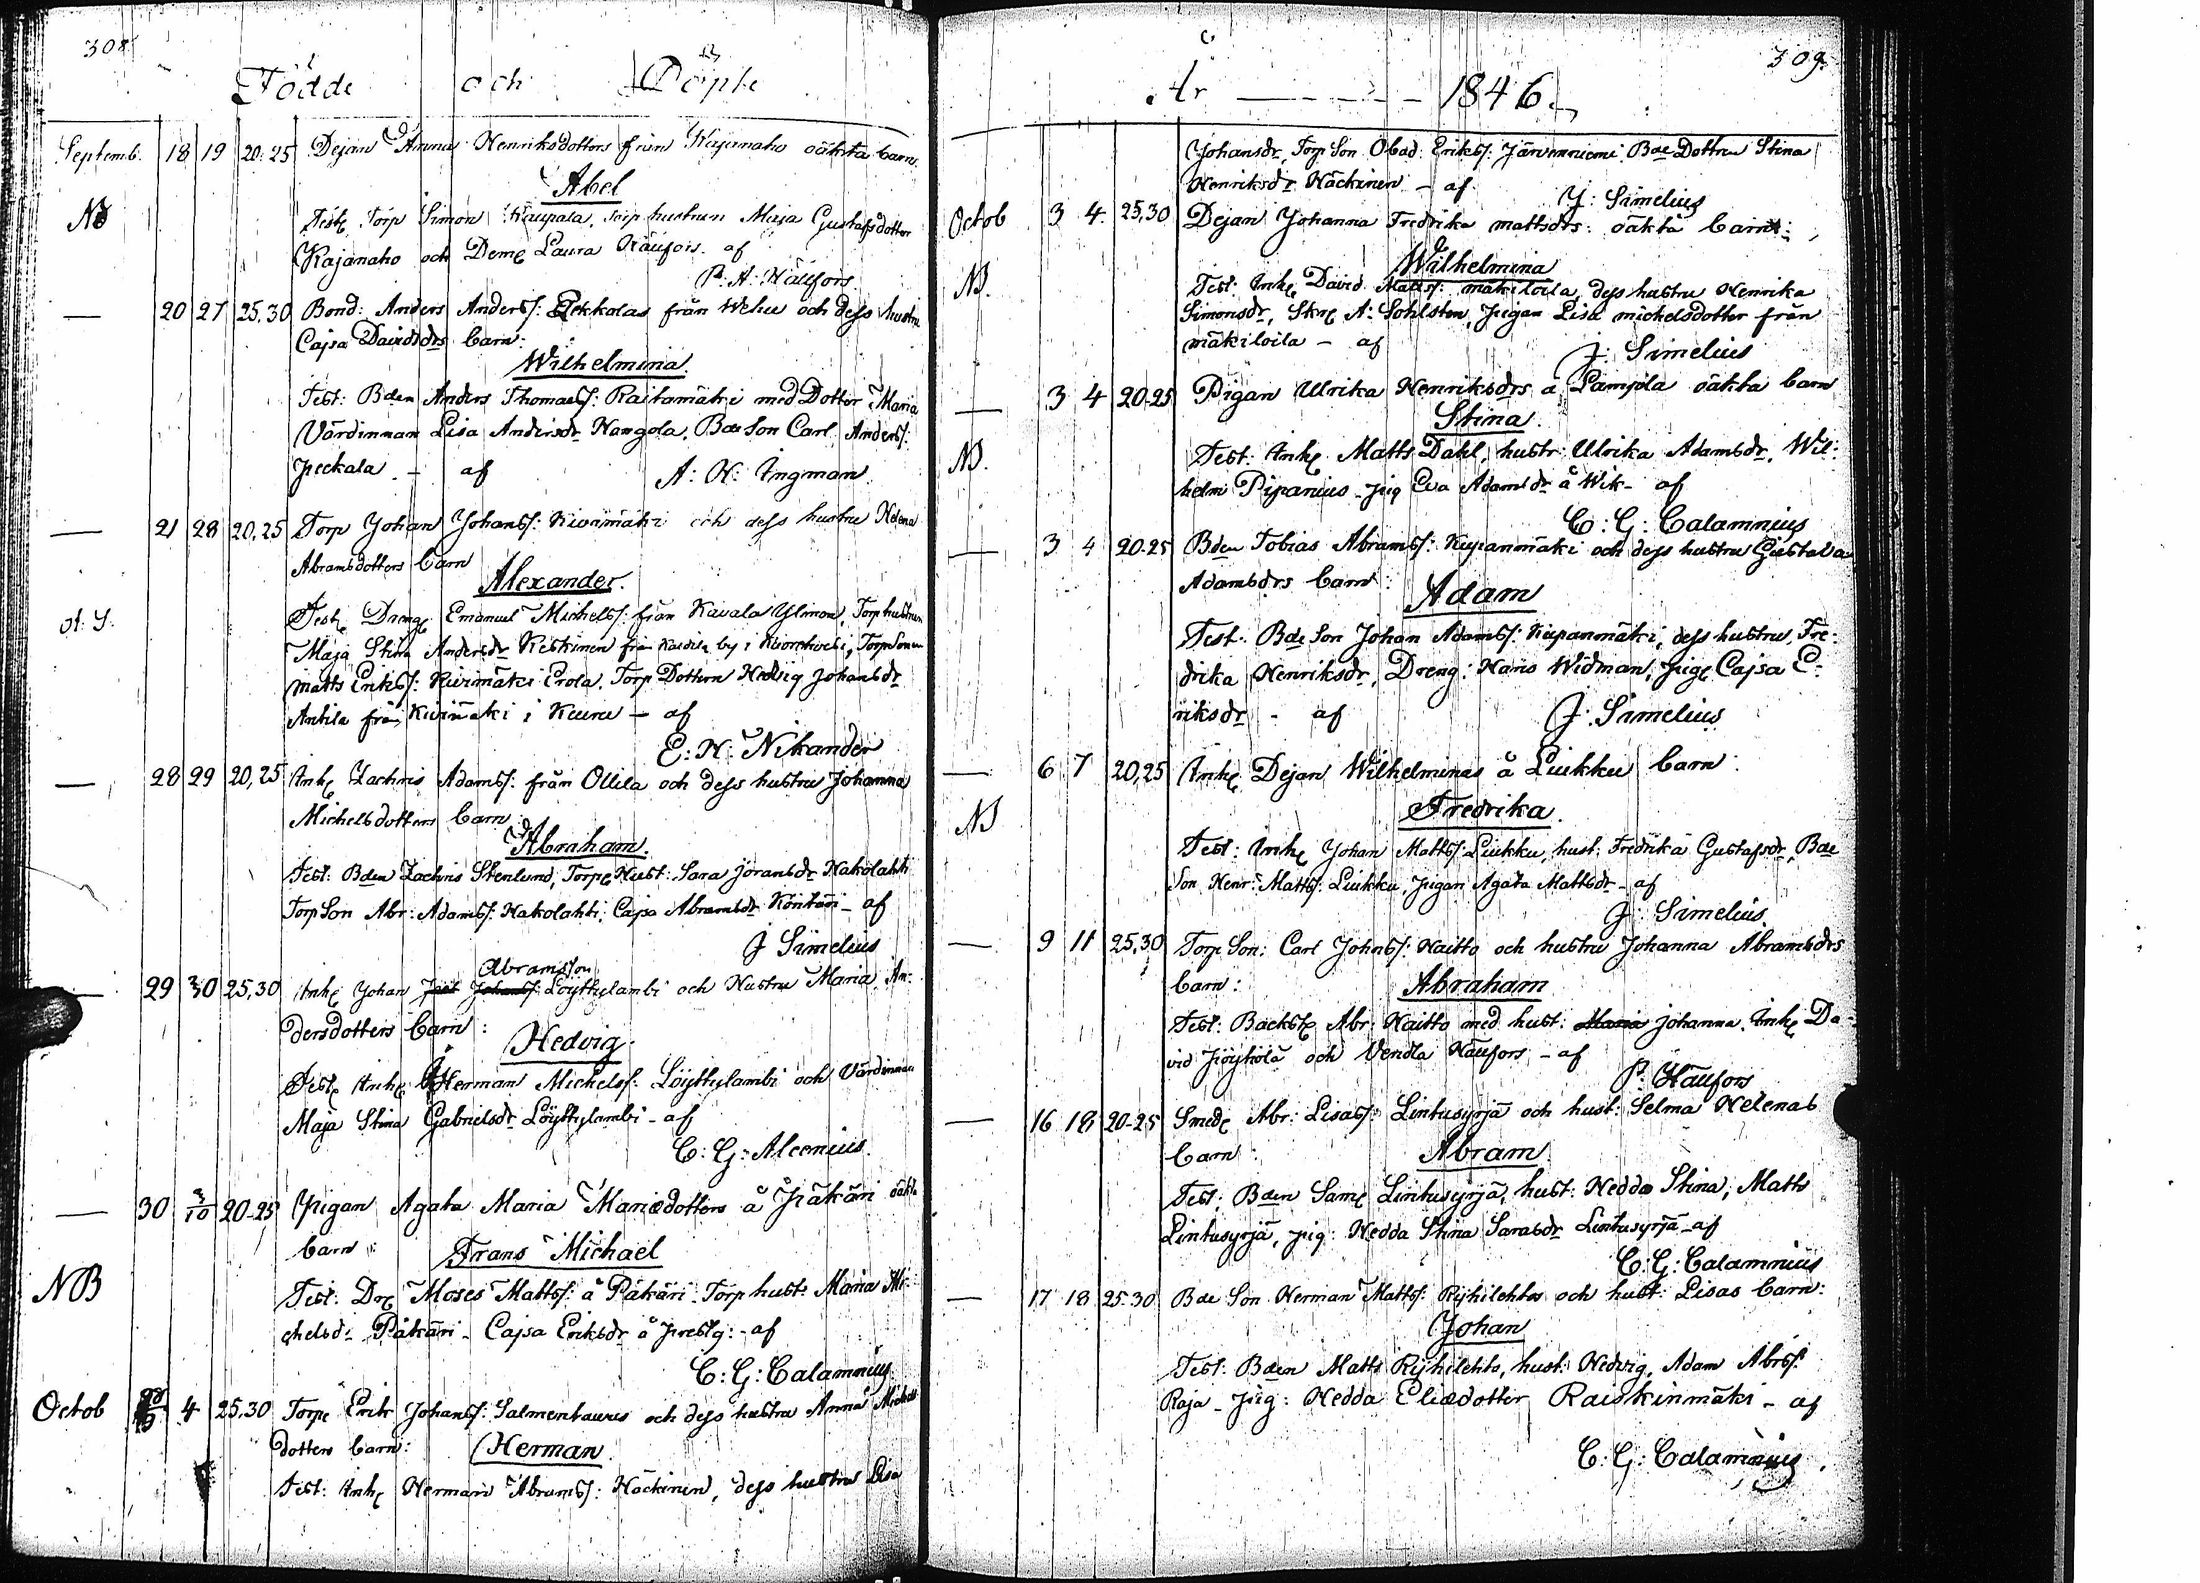 308
Födde och Döpte
Septemb. 18 19 20.25 Dejan Anna Henriksdotters från Kajanaho oäkta barn
Abel
NB Test Torp Simon Kaupala, Torp hustrun Maja Gustafsdotter
Kajanaho och Dem Laura Häufors. af
P: A: Häufors.
— 20 27 25.30 Bond: Anders Anders: Pekkalas från Wehu och dess hustru
Cajsa Davidsdrs barn:
Wilhelmina.
Test: Bden Anders Thomas: Raitamäki med Dotter Maria
Värdinnan Lisa Andersdr Hangola, Bde Son Carl Anders:
Peckala — af A: H: Ingman.
— 21 28 20,25 Torp Johan Johans: Kivimäki och dess hustru Helena
Abramsdotters barn
Alexander.
Test Dreng Emanuel Michels: från Kavala Ylinen, Torp hustrun
Maja Stina Andersdr Keskinen från by i Torp Sonen
Matts Eriks: Kivimäki Erola, Torp Dottren Hedvig Johansdr
Antila från Kivimäki i Kuru — af
E: H: Nikander
— 28 29 20,25 Inh Zachris Adams: från Ollila och dess hustru Johanna
Michelsdotters barn:
Abraham.
Test: Bden Zachris Stenlund, Torp Hust: Sara Joransdr Hakolahti
Torp Son Abr: Adams: Hakolahti, Cajsa Abramsdr Köntäri — af
J Simelius
Abramsson
— 29 30 25,30 Inh Johan Johans: Löyttylambi och Hustru Maria An:
dersdotters barn:
Hedvig.
Test Inh Herman Michels: Löyttylambi och Värdinnan
Maja Stina Gabrielsdr Löyttylambi — af
C: G: Alcenius.
— 30 3/10 20-25 Pigan Agata Maria Mariædotters å Päkäri oäkta
barn: Frans Michael
NB Test: Dr Moses Matts: å Päkäri. Torp hust: Maria Mi:
chelsd: Päkäri — Cajsa Eriksdr å Prestg: — af
C: G: Calamnius.
Octob 4 25,30 Torp Erik Johans: Salmentaures och dess hustru Anna Michels
dotters barn: Herman.
Test: Inh Herman Abrams: Häckinen, dess hustru Lisa
309.
År — 1846.
Johansdr, Torp Son Obad: Eriks: Järvenniemi Bde Dottren Stina
Henriksdr Häckinen — af J: Simelius
Octob 3 4. 25,30 Dejan Johanna Fredrika Mattsdrs: oäkta barn:
Wilhelmina
NB. Test: Inh David Matts: Mäkiloila, dess hustru Henrika
Simonsdr, Skr A: Sohlsten, Pigan Lisa Michelsdotter från
Mäkiloila — af J: Simelius
— 3 4 20-25 Pigan Ulrika Henriksdrs å Lampila oäkta barn
Stina.
NB. Test: Inh Matts Dahl, hustr: Ulrika Adamsdr, Wil:
helm Piponius — pig Eva Adamsdr å Wik — af
C: G: Calamnius
— 3 4 20-25 Bden Tobias Abrams: Kupanmäki och dess hustru Gustava
Adamsdrs barn: Adam
Test: Bde Son Johan Adams: Kupanmäki, dess hustru, Fre:
drika Henriksdr, Dreng: Hans Widman, Pig Cajsa E:
riksdr — af J: Simelius
— 6 7 20,25 Inh Dejan Wilhelminas å Liukku barn:
Fredrika.
NB Test: Inh Johan Matts: Liukku, hust: Fredrika Gustafsdr, Bde
Son Henr: Matts: Liukku, Pigan Agata Mattsdr — af
J: Simelius
— 9 11 25,30 Torp Son: Carl Johns: Haitto och hustru Johanna Abramsdrs
barn: Abraham
Test: Backst Abr: Haitto med hust: Maria Johanna. Inh Da:
vid Pöyhölä och Vendla Häufors — af
P: Häufors
— 16 18 20-25 Smed Abr: Lisas: Lintusyrjä och hust: Selma Helenas
barn: Abram
Test: Bden Sam Lintusyrjä, hust: Hedda Stina, Matts
Lintusyrjä, pig: Hedda Stina Sarasdr Lintusyrjä — af
C: G: Calamnius
— 17 18 25.30 Bde Son Herman Matts: Ryhilehtos och hust: Lisas barn:
Johan
Test: Bden Matts Ryhilehto, hust: Hedvig, Adam Abrs:
Raja — Pig: Hedda Eliædotter Raiskinmäki — af
C: G: Calamnius.